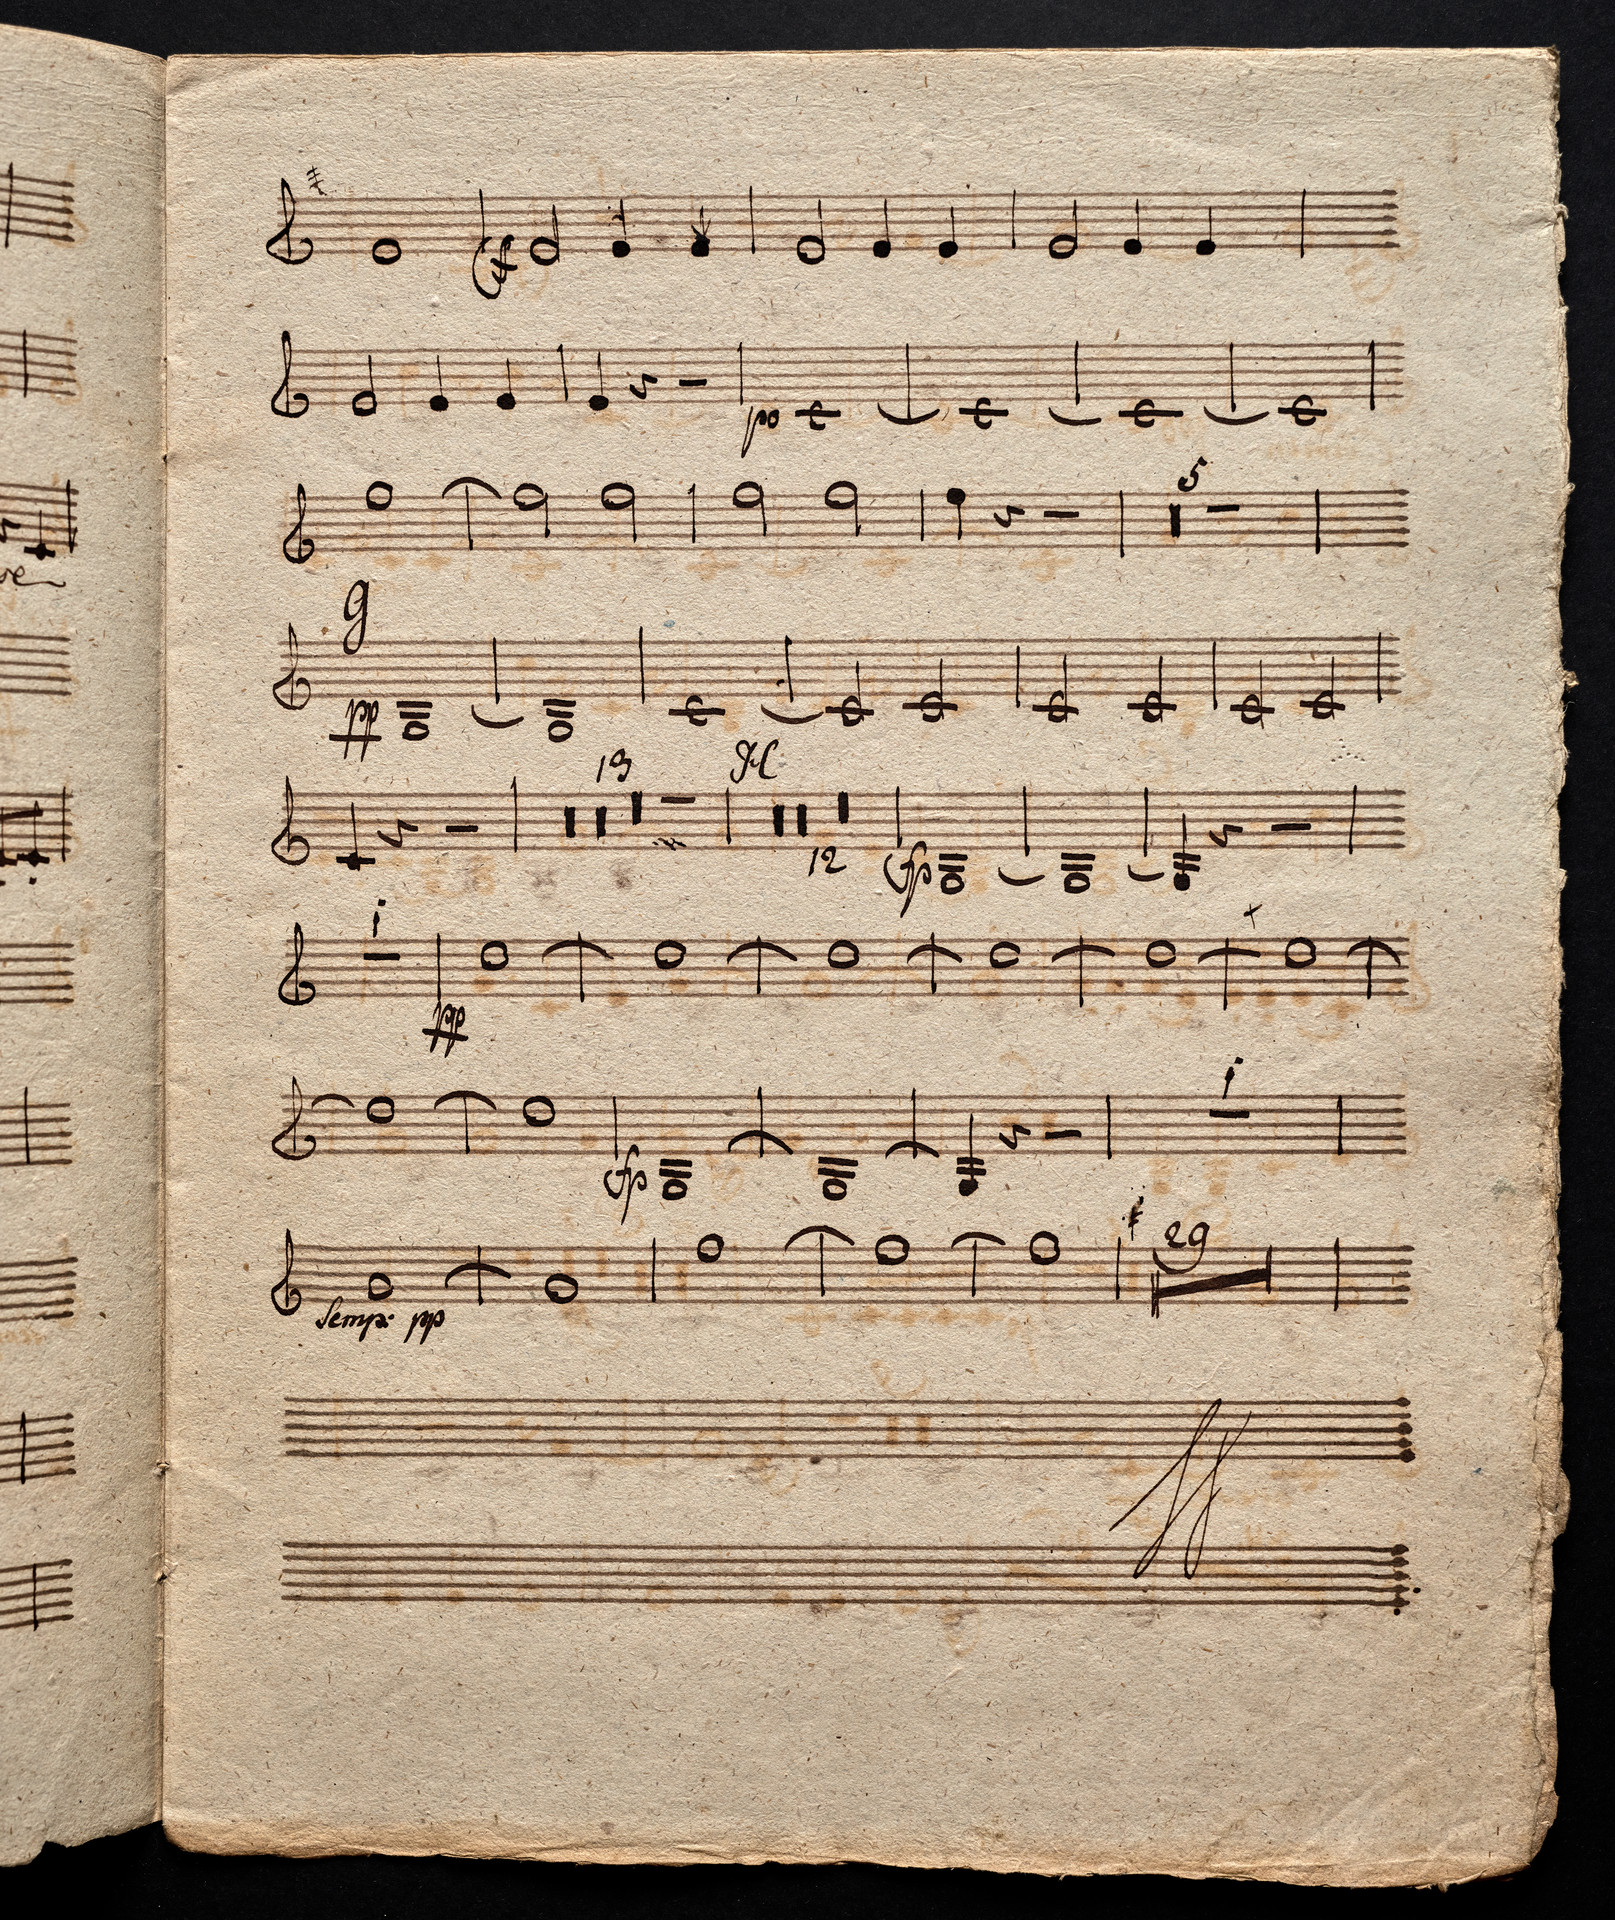 ff
po
5
g
pp
13 H
12 fp
i
pp
i
fp
29
Semp: pp